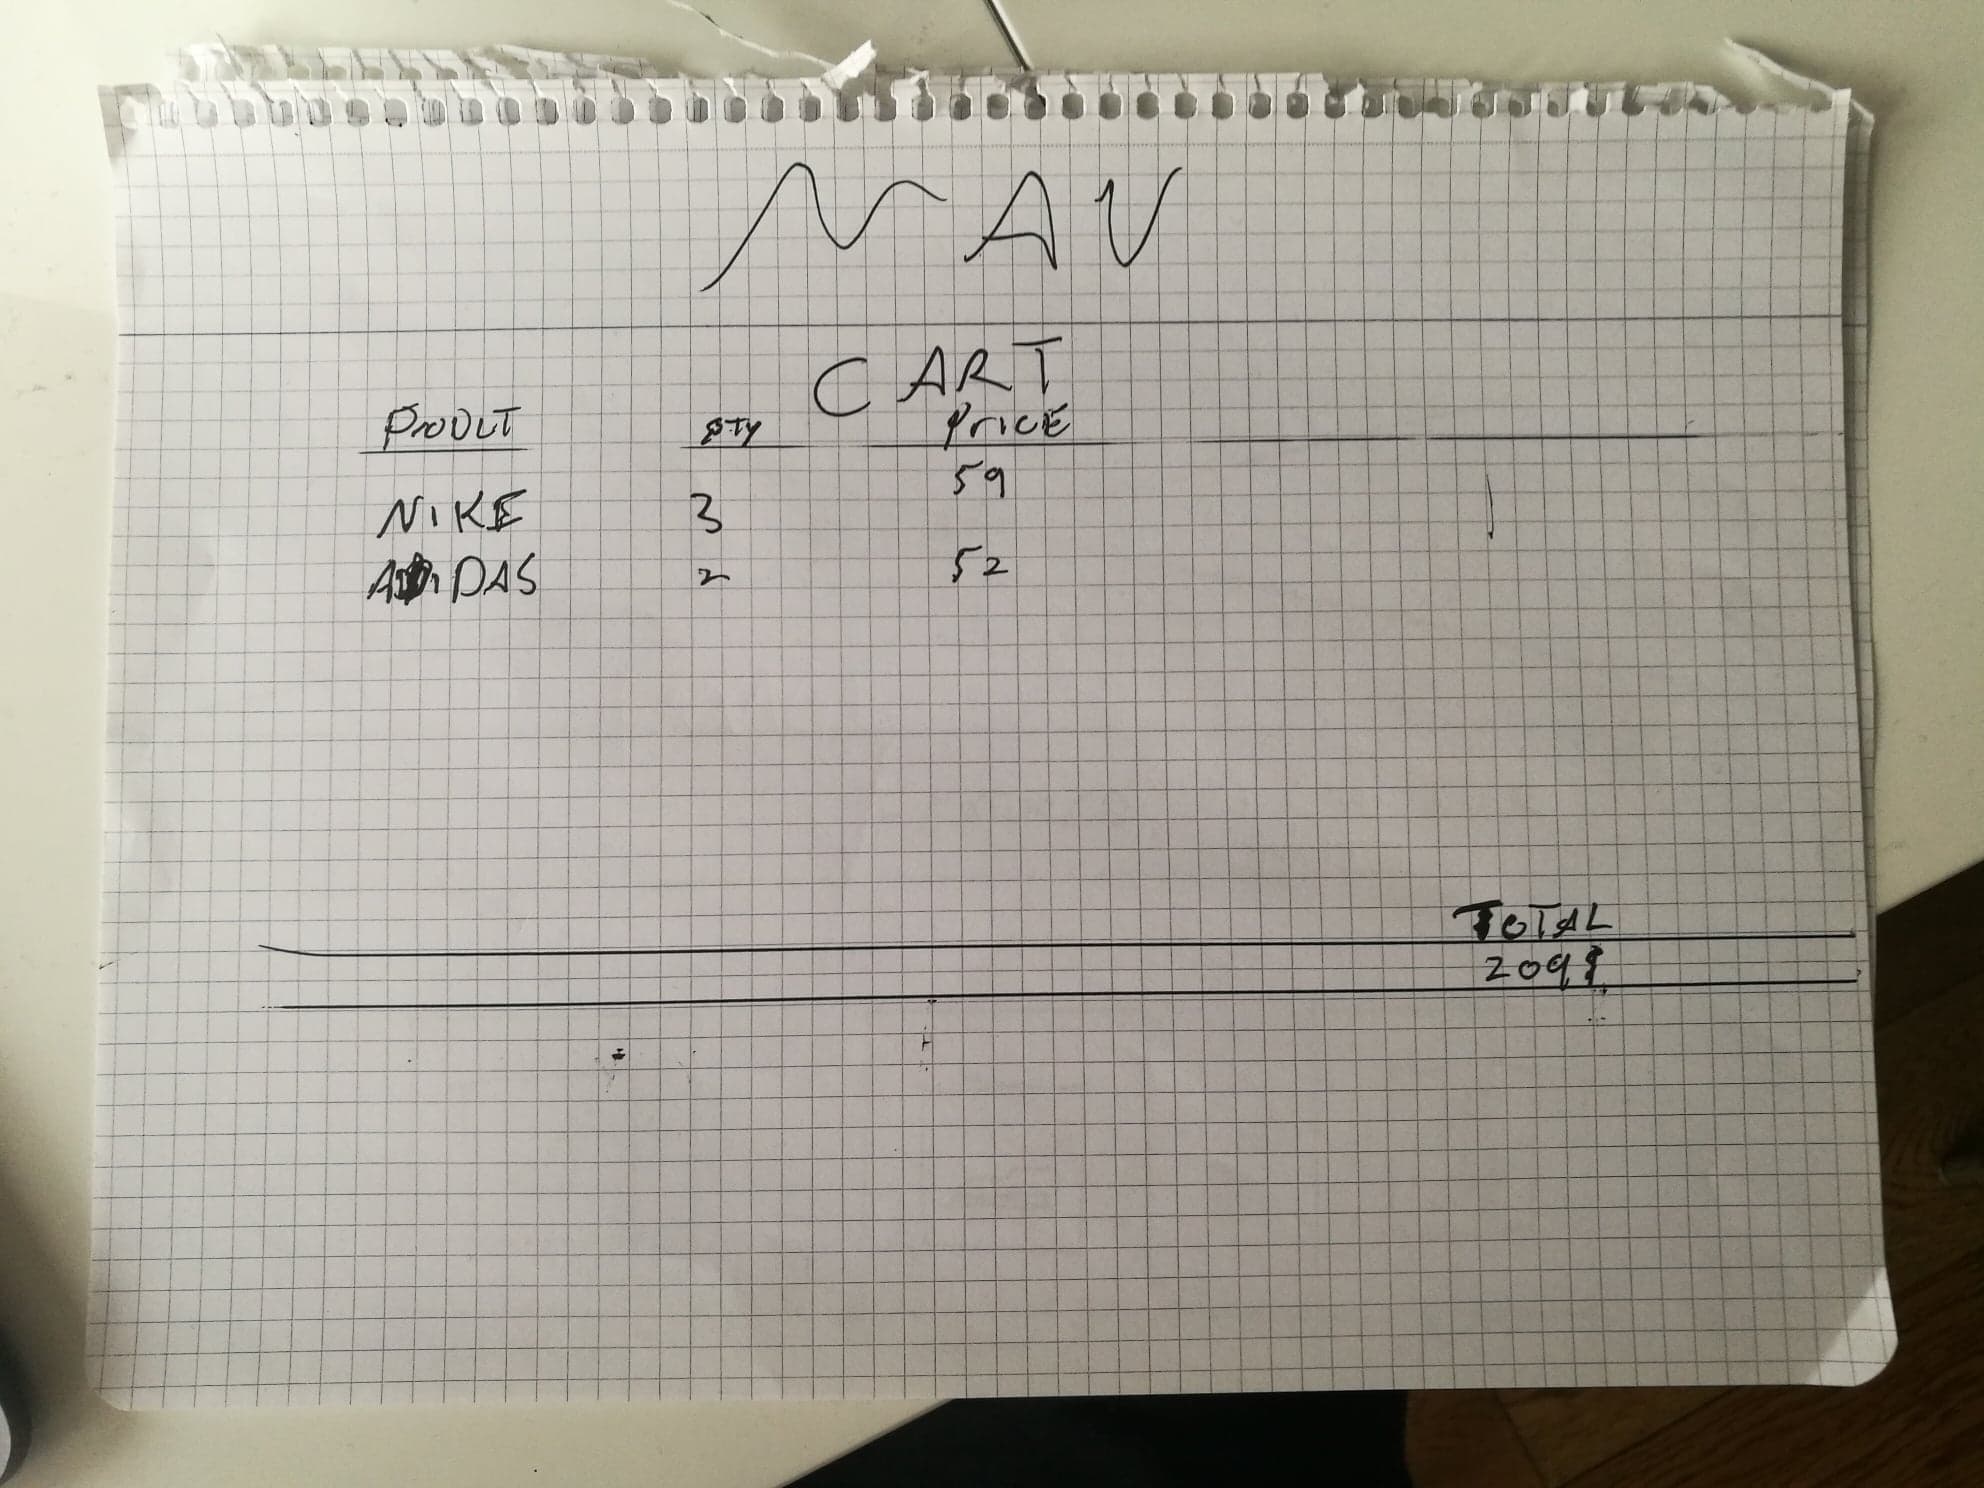 NAV
CART
PRODUT QTY PRICE
59
NIKE 3
ADIDAS 2 52
TOTAL
209